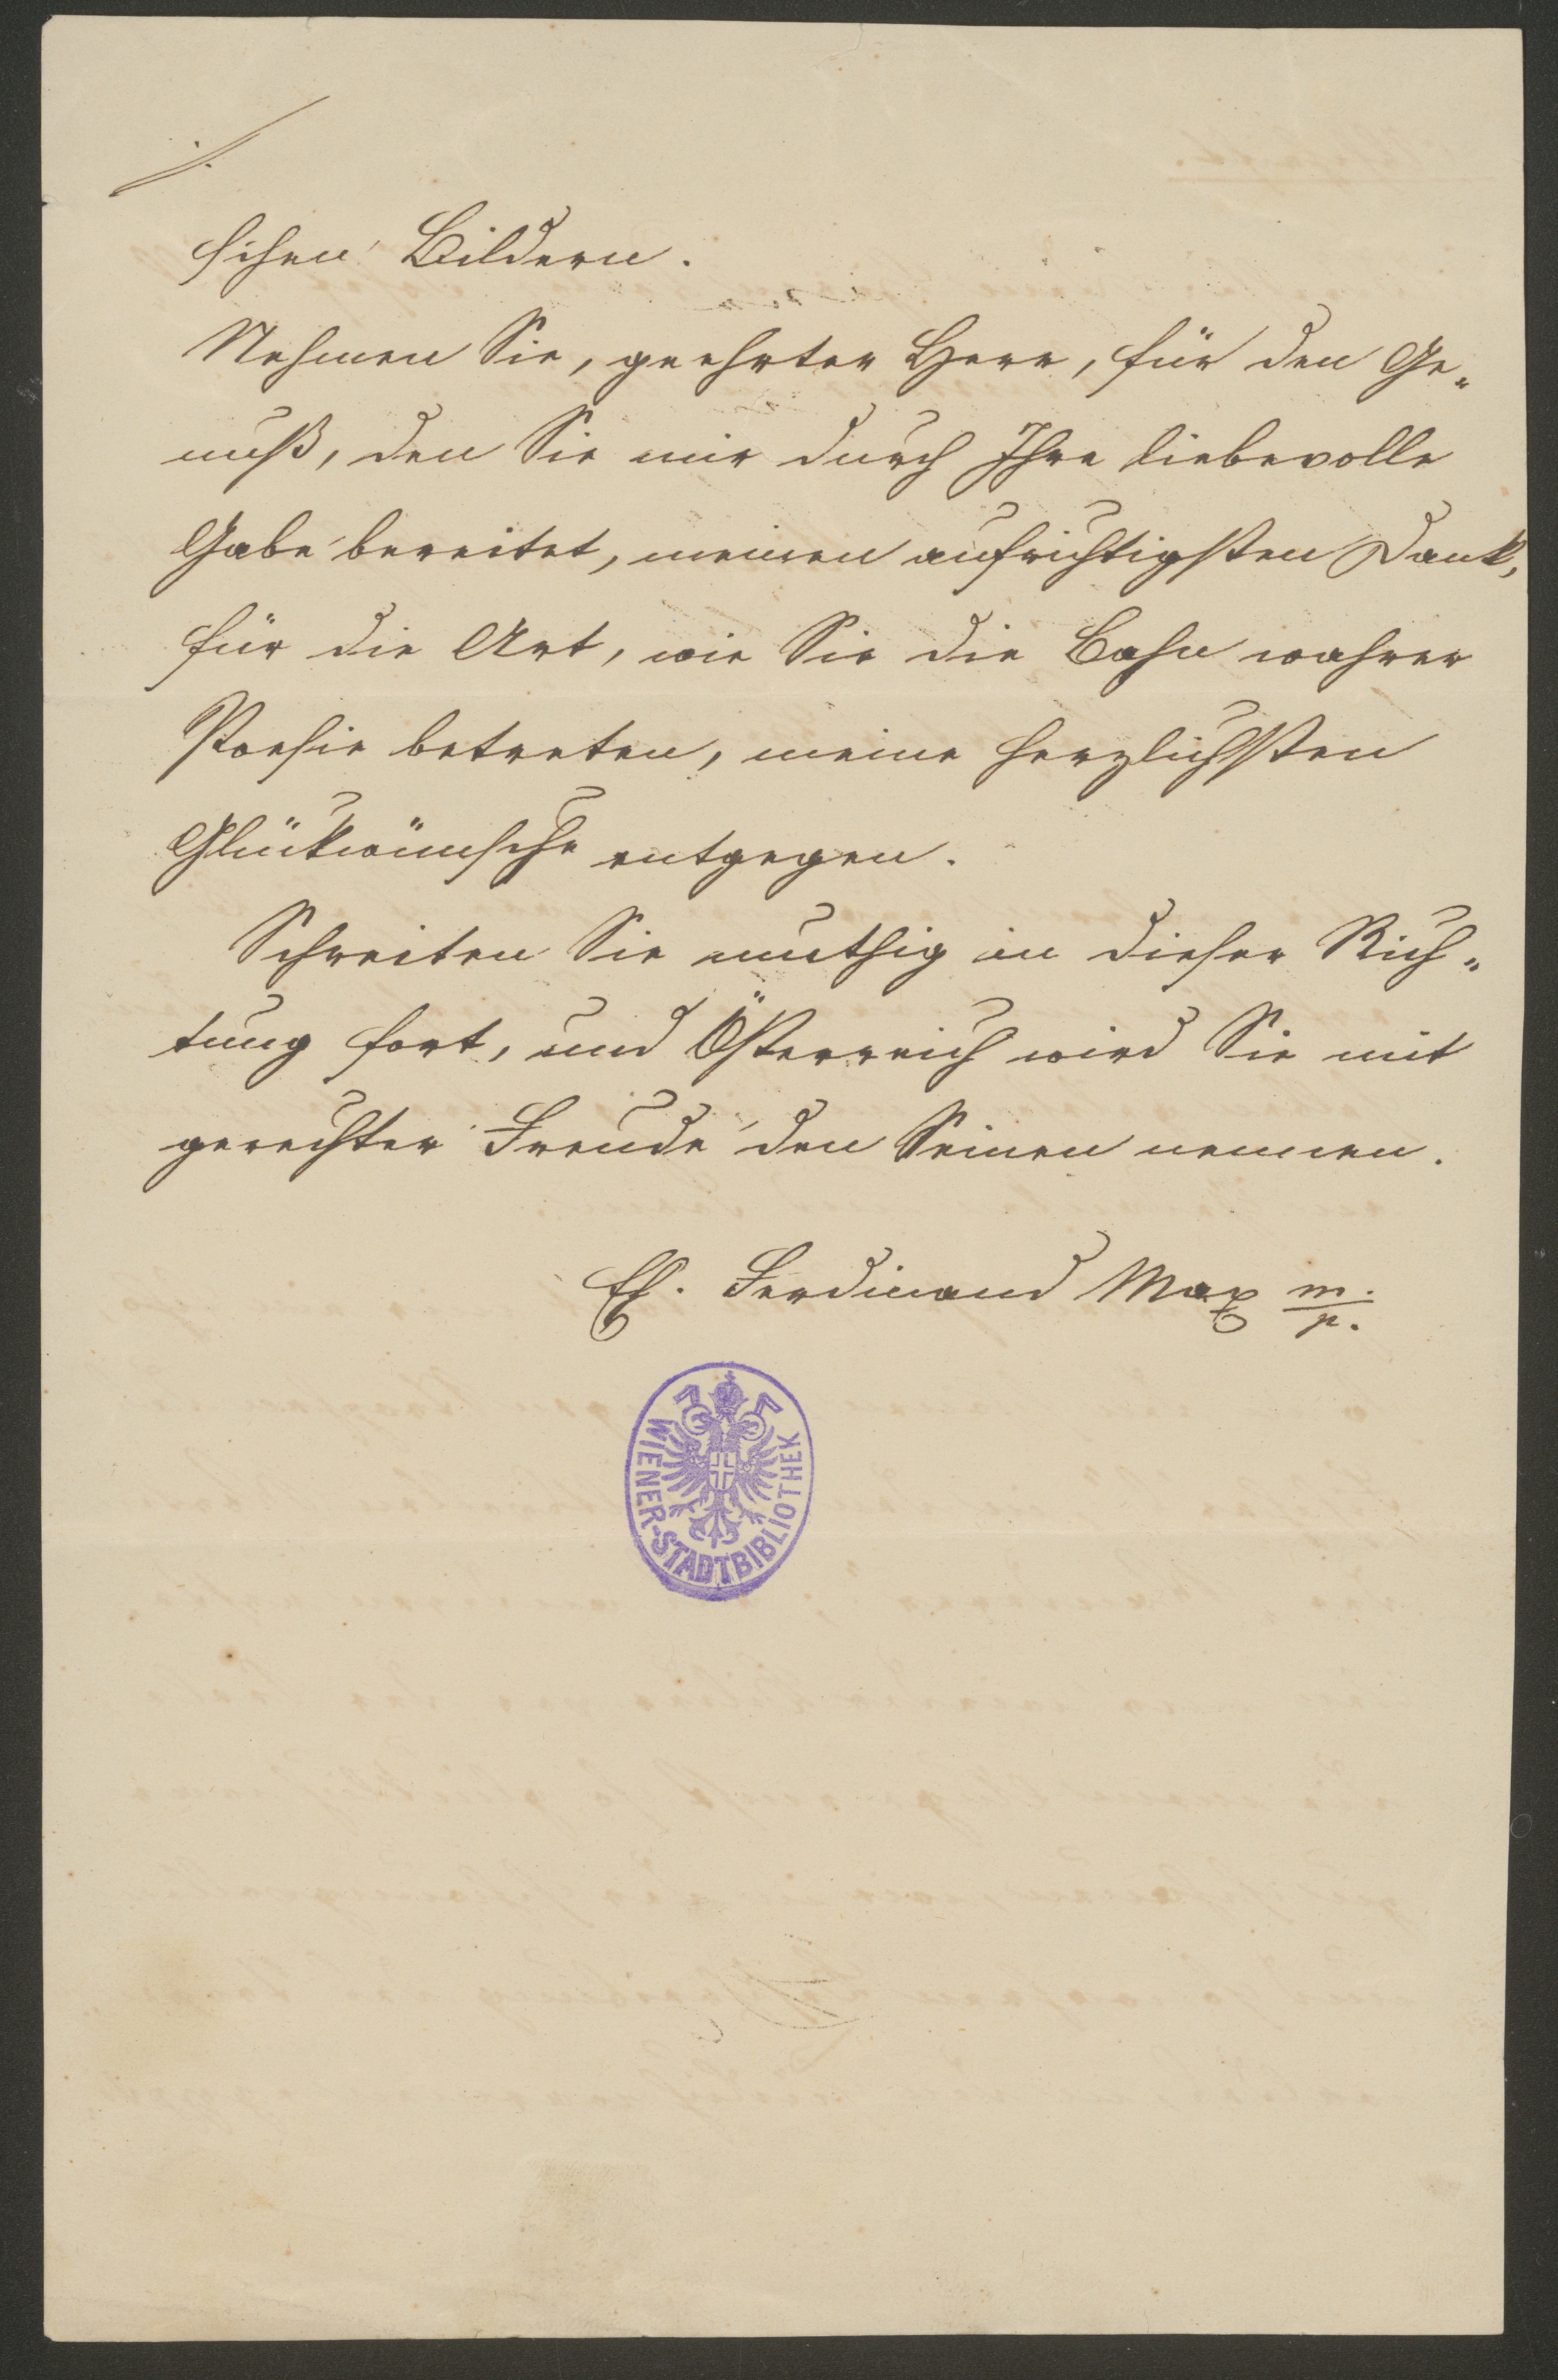 ./.
schen Bildern.
Nehmen Sie, geehrter Herr, für den Ge-
nuß, den Sie mir durch Ihre liebevolle
Gabe bereitet, meinen aufrichtigsten Dank,
für die Art, wie Sie die Bahn wahrer
Poesie betreten, meine herzlichsten
Glückwünsche entgegen.
Schreiten Sie muthig in dieser Rich-
tung fort, und Österreich wird Sie mit
gerechter Freude den Seinen nennen.
Eh. Ferdinand Max m./p.
WIENER-STADTBIBLIOTHEK